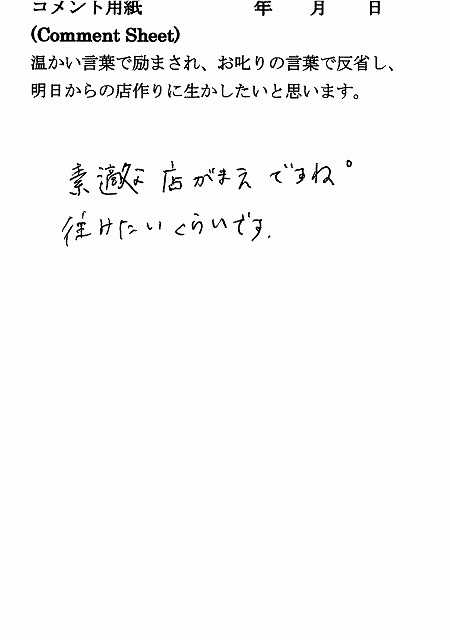 コメント用紙 年 月 日
(Comment Sheet)
温かい言葉で励まされ、お叱りの言葉で反省し、
明日からの店作りに生かしたいと思います。
素敵な店がまえですね。
住みたいくらいです.